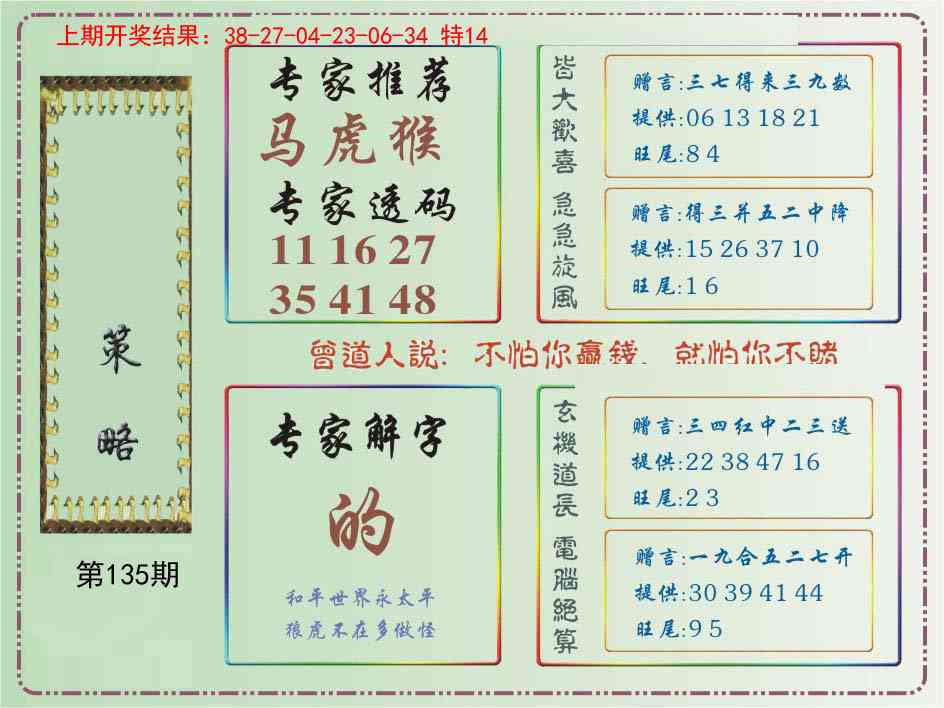 上期开奖结果：38-27-04-23-06-34 特14
策略
第135期
专家推荐
马虎猴
专家透码
11 16 27
35 41 48
皆大歡喜
赠言:三七得来三九数
提供:06 13 18 21
旺尾:8 4
急急旋風
赠言:得三并五二中降
提供:15 26 37 10
旺尾:1 6
曾道人説: 不怕你贏錢. 就怕你不賭
专家解字
的
和平世界永太平
狼虎不在多做怪
玄機道長
赠言:三四红中二三送
提供:22 38 47 16
旺尾:2 3
電腦絕算
赠言:一九合五二七开
提供:30 39 41 44
旺尾:9 5